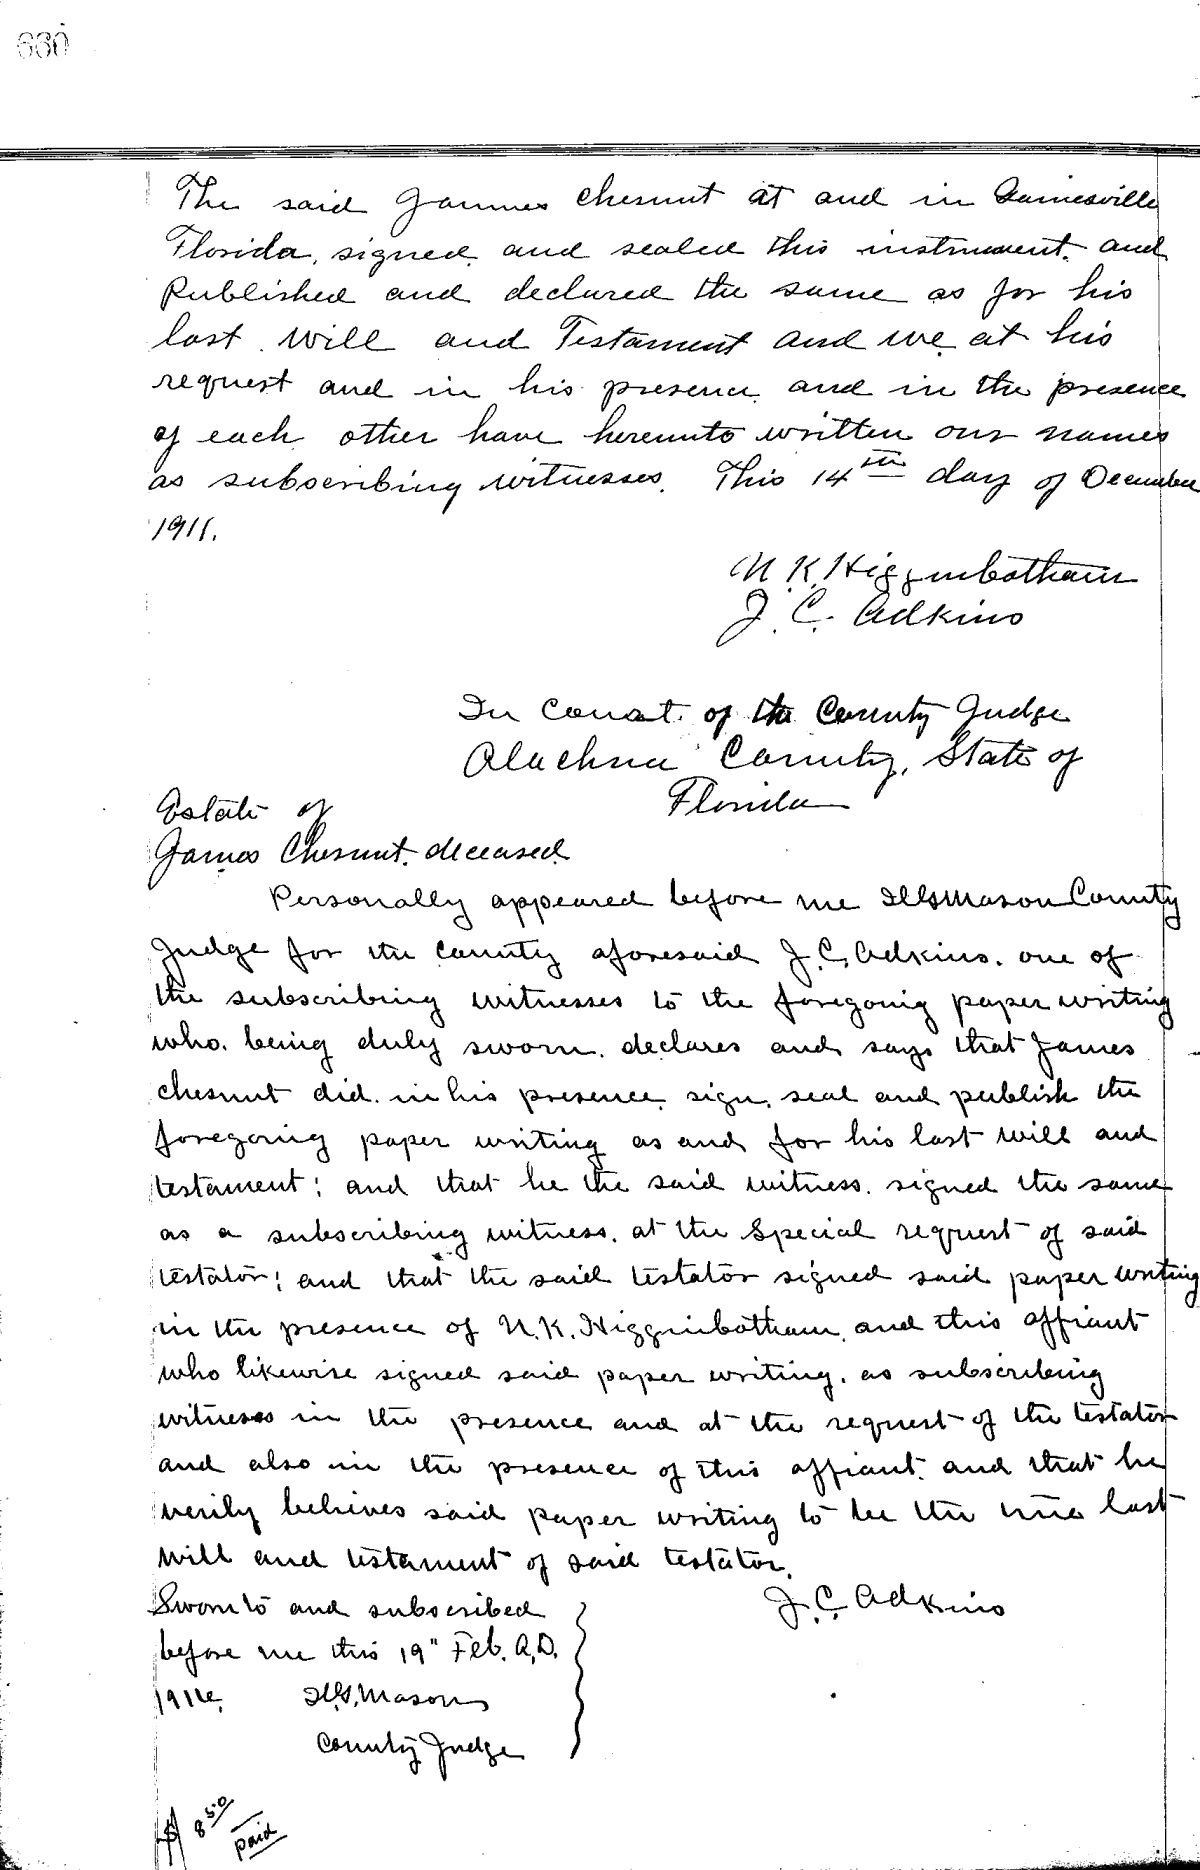 660
The said James Chesnut at and in Gainesville
Florida, signed and sealed this instrument. and
Published and declared the same as for his
last will and Testament and we at his
request and in his presence and in the presence
of each other have hereunto written our names
as subscribing witnesses. This 14th day of December
1911.
N. K. Higginbotham
J. C. Adkins
In Court of the County Judge
Alachua County, State of
Florida
Estate of
James Chesnut, deceased
Personally appeared before me H.G. Mason County
Judge for the County aforesaid J. C. Adkins. one of
the subscribing witnesses to the foregoing paper writing
who. being duly sworn. declares and says that James
chesnut did. in his presence, sign, seal and publish the
foregoing paper writing as and for his last will and
testament; and that he the said witness. signed the same
as a subscribing witness. at the special request of said
testator; and that the said testator signed said paper writing
in the presence of N. K. Higginbotham, and this affiant
who likewise signed said paper writing. as subscribing
witness in the presence and at the request of the testator
and also in the presence of this affiant. and that he
verily believes said paper writing to be the true last
will and testament of said testator.
Sworn to and subscribed J. C. Adkins
before me this 19" Feb. A.D.
H.G. Mason
County Judge
$ 8 50
paid